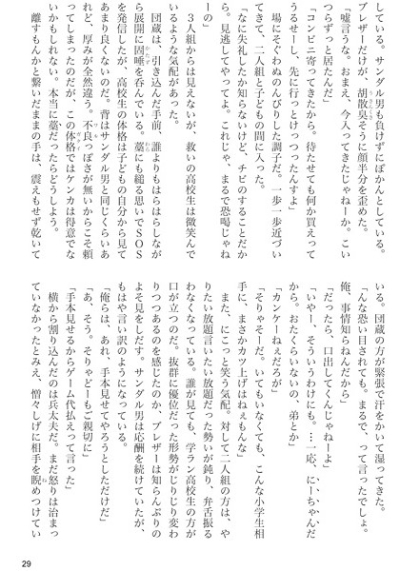 している。サンダル男も負けずにぽかんとしている。
ブレザーだけが、胡散臭そうに顔半分を歪めた。
「嘘言うな。おまえ、今入ってきたじゃねーか。こい
つらずっと居たんだ」
「コンビニ寄ってきたから。待たせても何か買えって
うるせーし、先に行っとけっつったんすよ」
場にそぐわぬのんびりした調子だ。一歩一歩近づい
てきて、二人組と子どもの間に入った。
「なに失礼したか知らないけど、チビのすることだか
ら。見逃してやってよ。これじゃ、まるで恐喝じゃね
ーの」
３人組からは見えないが、救いの高校生は微笑んで
いるような気配があった。
団蔵は、引き込んだ手前、誰よりもはらはらしなが
ら展開に固唾を呑んでいる。藁にも縋る思いでＳＯＳ
を発信したが、高校生の体格は子どもの自分から見て
あまり良くないのだ。背はサンダル男と同じくらいあ
れど、厚みが全然違う。不良っぽさが無いからこそ頼
ってしまったのだが、この体格ではケンカは得意でな
いかもしれない。本当に藁だったらどうしよう。
離すもんかと繋いだままの手は、震えもせず乾いて
いる。団蔵の方が緊張で汗をかいて湿ってきた。
「んな恐い目されても。まるで、って言ったでしょ。
俺、事情知らねんだから」
「だったら、口出してくんじゃねーよ」
「いやー、そういうわけにも。…一応、にいちゃんだ
から。おたくらいないの、弟とか」
「カンケーねぇだろが」
「そりゃそーだ。いてもいなくても、こんな小学生相
手に、まさかカツ上げはねぇもんな」
また、にこっと笑う気配。対して二人組の方は、や
りたい放題言いたい放題だった勢いが鈍り、弁舌振る
わなくなっている。誰が見ても、学ラン高校生の方が
口が立つのだ。抜群に優位だった形勢がじりじり変わ
りつつあるのを感じたのか、ブレザーは知らんぷりの
よそ見をしだす。サンダル男は応酬を続けていたが、
もはや言い訳のようになっている。
「俺らは、あれ、手本見せてやろうとしただけだ」
「あ、そう。そりゃどーもご親切に」
「手本見せるからゲーム代払えって言った」
横から割り込んだのは兵太夫だ。まだ怒りは治まっ
ていなかったとみえ、憎々しげに相手を睨めつけてい
29